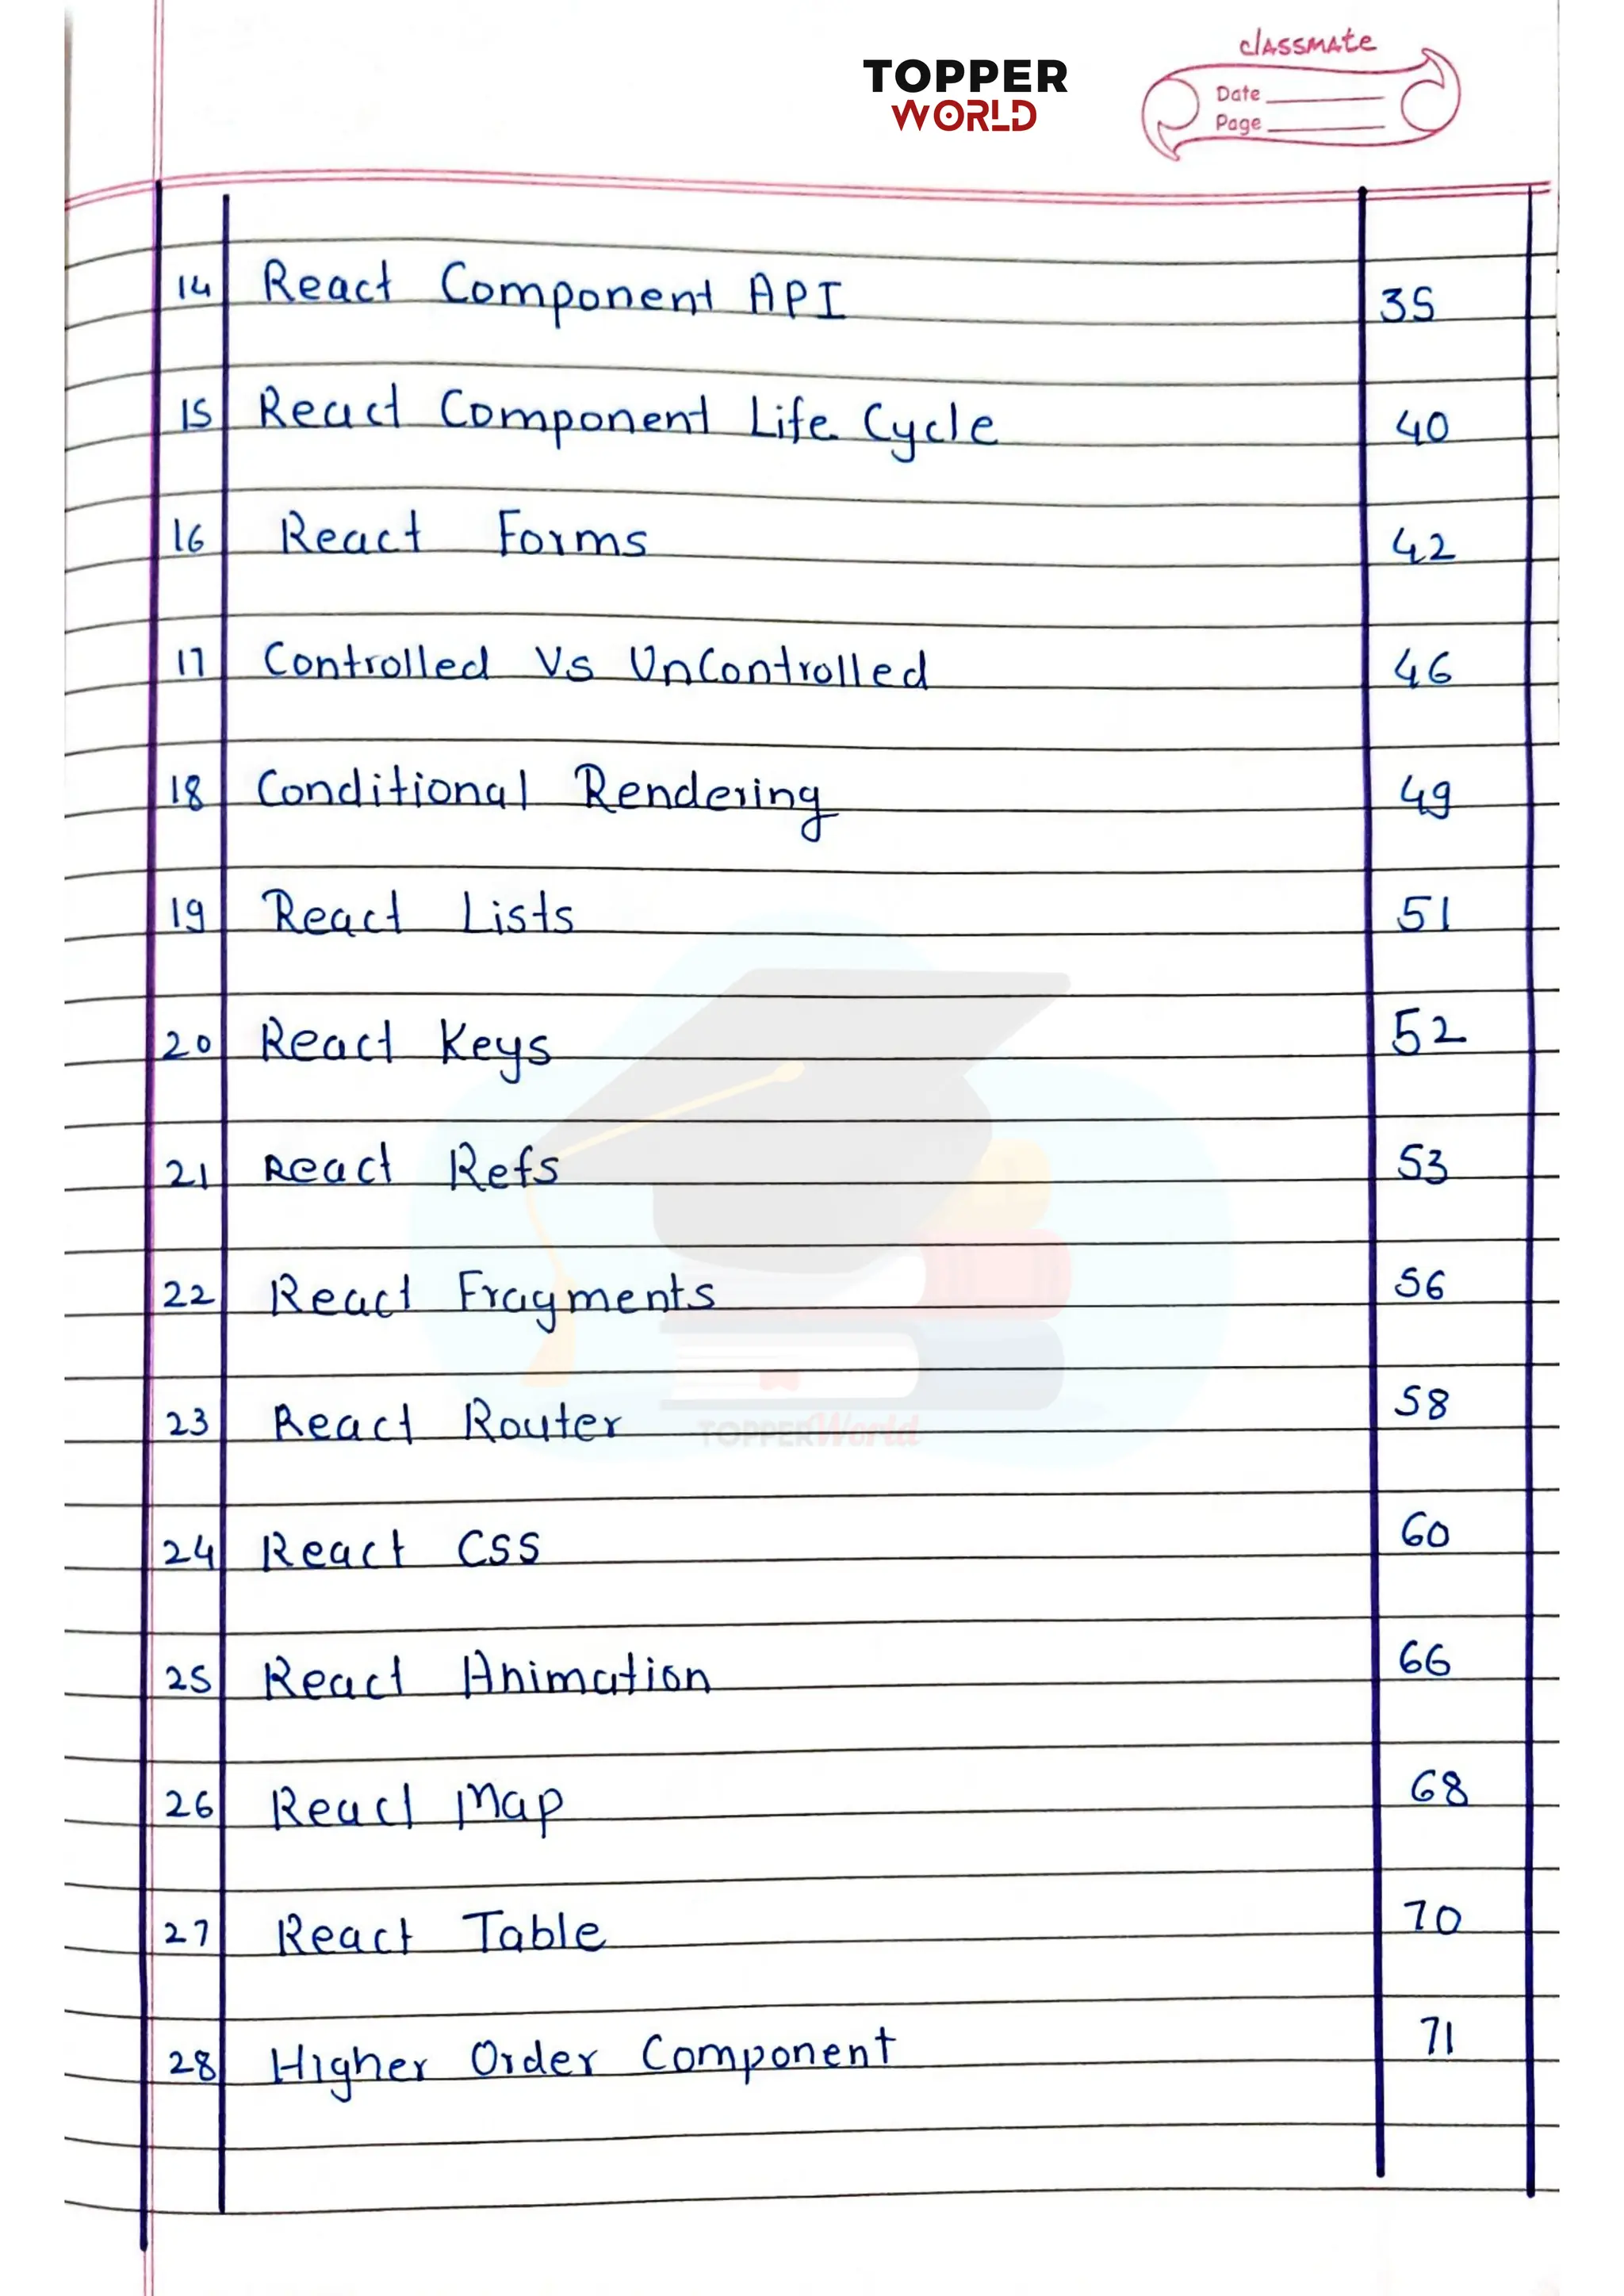 TOPPER
WORLD
classmate
Date
Page
14 React Component API 35
15 React Component Life Cycle 40
16 React Forms 42
17 Controlled Vs UnControlled 46
18 Conditional Rendering 49
19 React Lists 51
20 React Keys 52
21 React Refs 53
22 React Fragments 56
23 React Router 58
TOPPERWorld
24 React CSS 60
25 React Animation 66
26 React Map 68
27 React Table 70
28 Higher Order Component 71